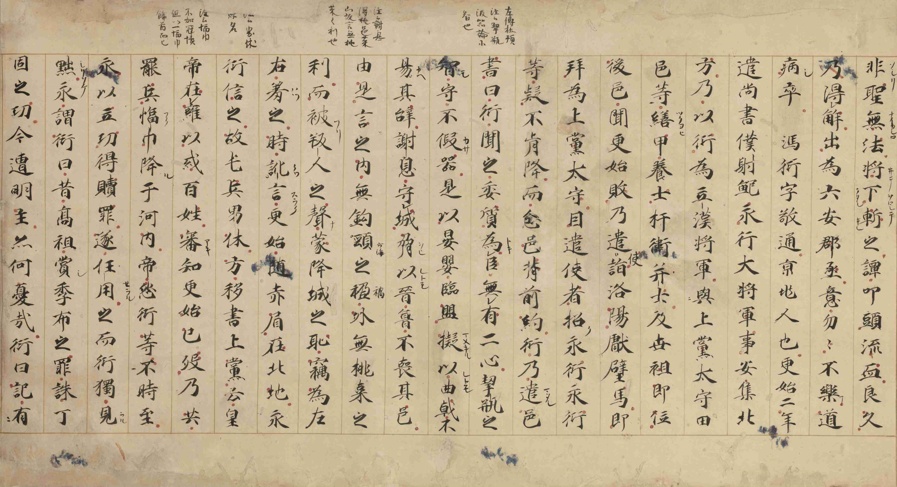 非聖無法將下斬之譚叩頭流血良久
乃得解出為六安郡丞意勿〻不樂道
病卒　馮衍字敬通京地人也更始二年
遣尚書僕射鮑永行大將軍事安集北
方乃以衍為立漢將軍與上黨太守田
邑等繕甲養士扞衛并土及世祖即位
後邑聞更始敗乃遣使詣洛陽獻璧馬即
拜為上黨太守因遣使者招永衍永衍
等疑不肯降而忿邑背前約衍乃遺邑
書曰衍聞之委質為臣無有二心挈瓶之
智守不假器是以晏嬰臨盟擬以曲戟不
易其辭謝息守郕脅以晉魯不喪其邑
由是言之内無鉤頸之禍外無桃萊之
利而被叛人之聲蒙降城之恥竊為左
右羞之時訛言更始隨赤眉在北地永
衍信之故屯兵界休方移書上黨云皇
帝在雍以惑百姓審知更始已歿乃共
罷兵幅巾降于河内帝怨衍等不時至
永以立功得贖罪遂任用之而衍獨見
黜永謂衍曰昔高祖賞季布之罪誅丁
固之功今遭明主亦何憂哉衍曰記有